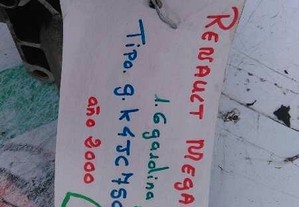 RENAULT MEGA
1.6 gasolina
Tipo. g. K4JC750
año 2000